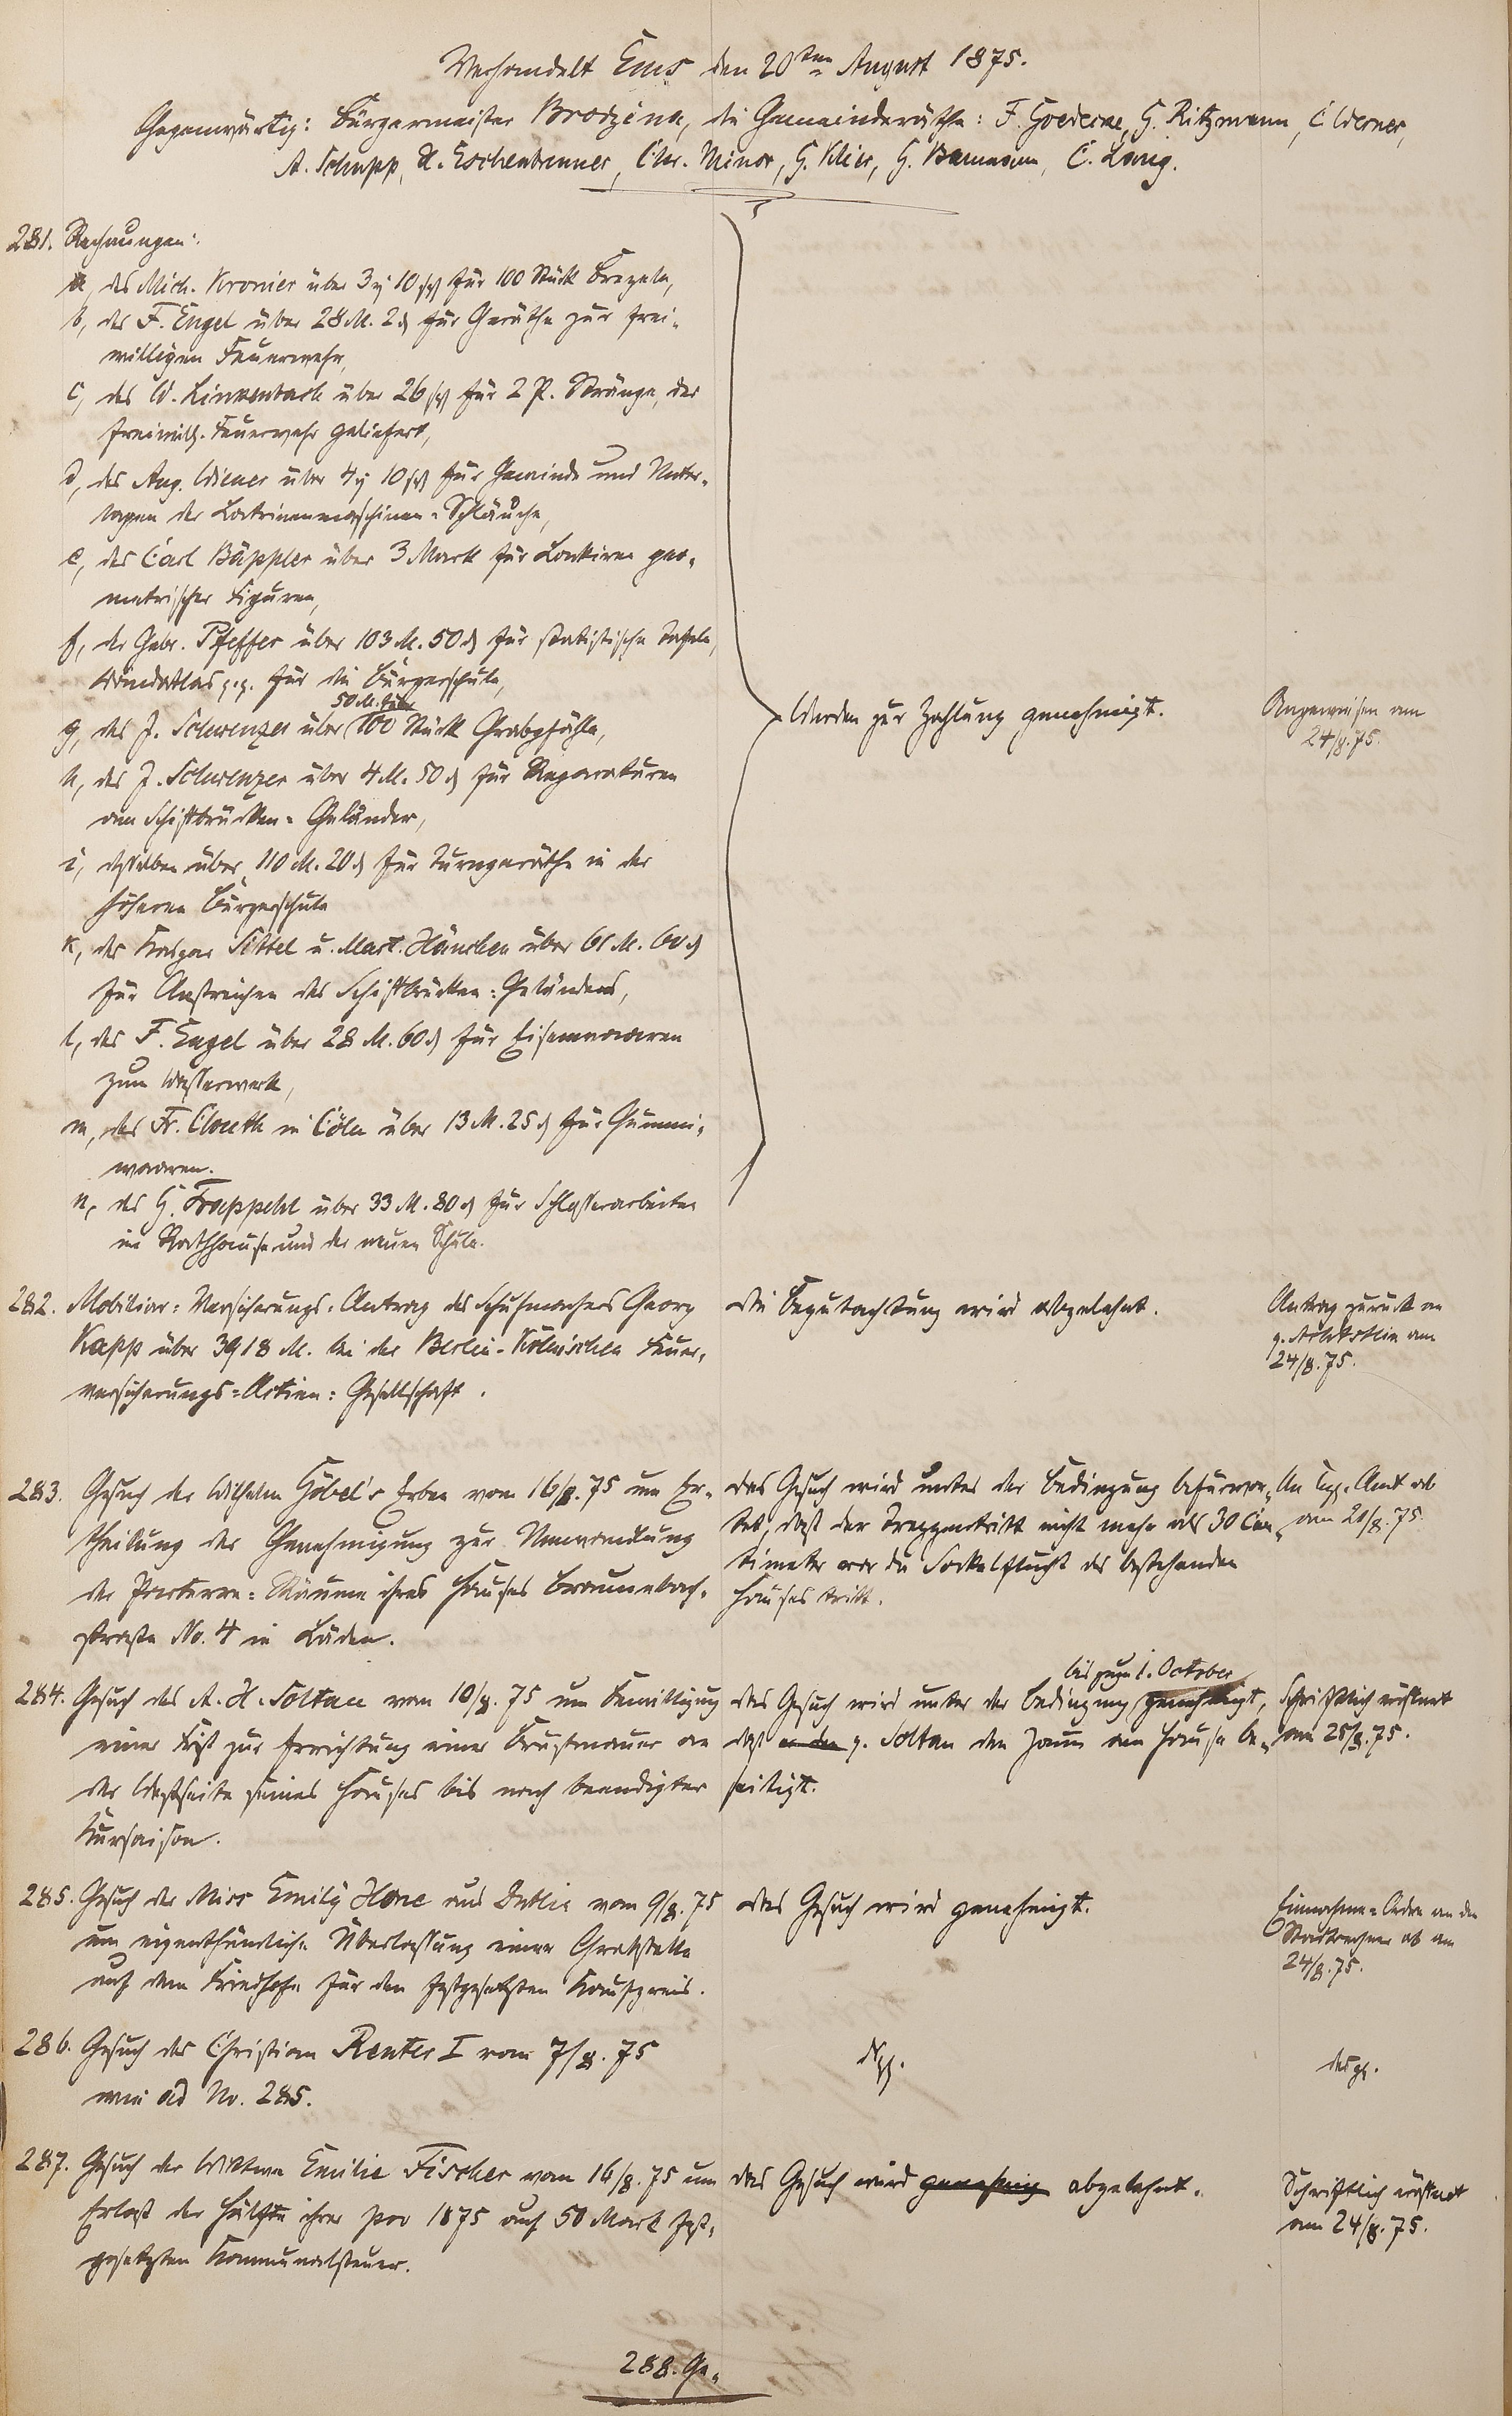 Verhandelt Ems den 20ten August 1875.
Gegenwärtig: Bürgermeister Brodzina, die Gemeinderäthe: F. Goedecke, G. Ritzmann, C. Werner,
A. Schupp, H. Eschenbrenner, Chr. Minor, G. Klier, G. Baumann, C. Lang.
281. Rechnungen:
a, des Mich. Kronier über 3 10 für 100 Stück Brezeln,
b, des F. Engel über 28 M. 2 für Geräthe zur frei-
willigen Feuerwehr,
c, des W. Linkenbach über 26 für 2 P. Stränge, der
freiwill. Feuerwehr geliefert,
d, des Aug. Wiener über 4 10 für Gewinde und Unter-
lagen der Latrinenmaschinen-Schläuche,
e, des Carl Bäppler über 3 Mark für Lackiren geo-
metrischer Figuren,
f, der Gebr. Pfeffer über 103 M. 50 für statistische Tafeln,
Wandatlas p.p. für die Bürgerschule,
50 M. für
g, des J. Schwenzer über 100 Stück Grabpfähle,
h, des J. Schwenzer über 4 M. 50 für Reparaturen
am Schiffbrücken-Geländer,
i, desselben über 110 M. 20 für Turngeräthe in der
höheren Bürgerschule
k, des Kaspar Sittel u. Mart. Hänchen über 61 M. 60
für Anstreichen des Schiffbrücken-Geländers,
l, des F. Engel über 28 M. 60 für Eisenwaaren
zum Wasserwerk,
m, des Fr. Clouth in Cöln über 13 M. 25 für Gummi-
waaren.
n, des G. Trappehl über 33 M. 80 für Schlosserarbeiten
im Rathhause und der neuen Schule.
Werden zur Zahlung genehmigt.
Angewiesen am
24/8.75.
282. Mobiliar-Versicherungs-Antrag des Schuhmachers Georg
Kapp über 3918 M. bei der Berlin-Kölnischen Feuer-
versicherungs-Actien-Gesellschaft.
Die Begutachtung wird abgelehnt.
Antrag zurück an
am
24/8.75.
283. Gesuch der Wilhelm Göbel's Erben vom 16/8.75 um Er-
theilung der Genehmigung zur Umwandlung
der Parterre-Räume ihres Hauses Braunebach-
straße No. 4 in Läden.
Das Gesuch wird unter der Bedingung befürwor-
tet, daß der Treppentritt nicht mehr als 30 Cen-
timeter vor die Sockelflucht des bestehenden
Hauses tritt.
An Kgl. Amt ab
am 21/8.75.
284. Gesuch des A. H. Soltau vom 10/8.75 um Bewilligung
einer Frist zur Errichtung einer Brustmauer an
der Westseite seines Hauses bis nach beendigter
Kursaison.
bis zum 1. October
Das Gesuch wird unter der Bedingung genehmigt,
daß p. Soltau den Zaun am Hause be-
seitigt.
Schriftlich eröffnet
am 25/8.75.
285. Gesuch der Miss Emily Hone aus Dublin vom 9/8.75
um eigenthümliche Überlassung einer Grabstelle
auf dem Friedhofe für den festgesetzten Kaufpreis.
Das Gesuch wird genehmigt.
Einnahme-Ordre an den
Stadtrechner ab am
24/8.75.
286. Gesuch des Christian Reuter I vom 7/8.75
wie ad No. 285.
dsgl.
desgl.
287. Gesuch der Wittwe Emilie Fischer vom 16/8.75 um
Erlaß der Hälfte ihrer pro 1875 auf 50 Mark fest-
gesetzten Kommunalsteuer.
Das Gesuch wird genehmig abgelehnt.
Schriftlich eröffnet
am 24/8.75.
288. Ge-